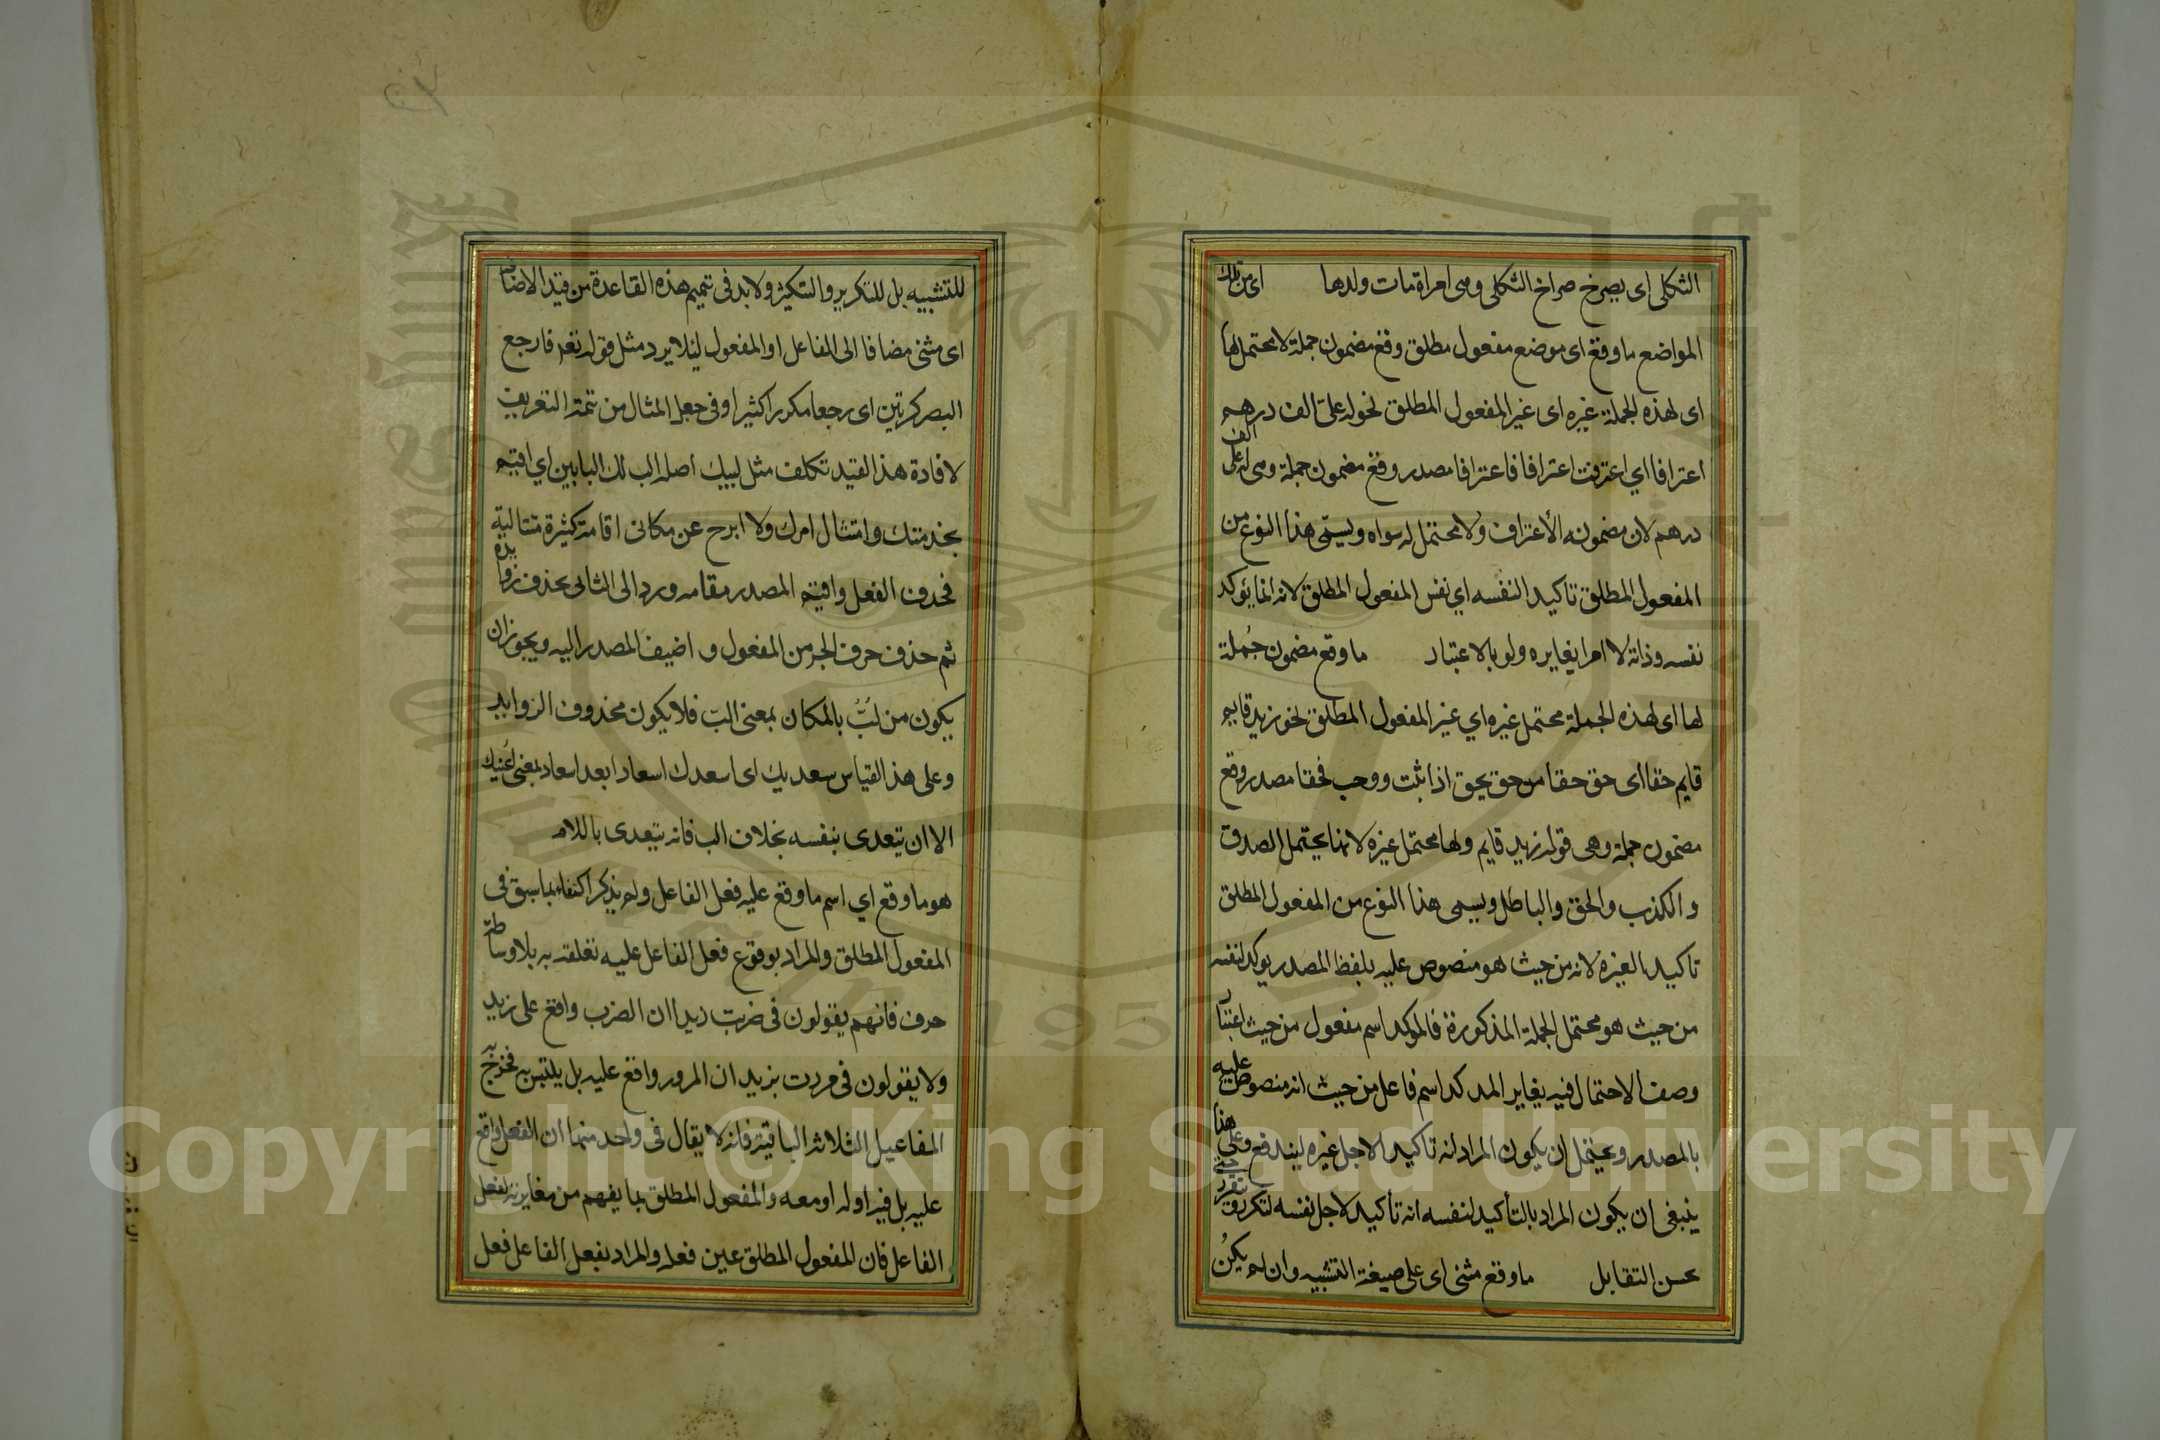 الثكلى اى يصرخ صراخ الثكلى وهى امراة مات ولدها اى من تلك
المواضع ما وقع اى موضع مفعول مطلق وقع مضمون جملة لا محتمل لها
اى لهذه الجملة غيره اى غير المفعول المطلق نحو له على الف درهم
اعترافا اي اعترفت اعترافا فاعترافا مصدر وقع مضمون جملة وهى له على الف
درهم لان مضمونه الأعتراف ولا محتمل له سواه ويسمّى هذا النوع من
المفعول المطلق تاكيدا لنفسه اي نفس المفعول المطلق لانه انما يؤكد
نفسه وذاته لا امرا يغايره ولو بالاعتبار ما وقع مضمون جُملة
لها اى لهذه الجملة محتمل غيره اي غير المفعول المطلق نحو زيد قايم
قايم حقا اى حق حقا من حق يحق اذا ثبت ووجب فحقا مصدر وقع
مضمون جملة وهى قوله زيد قايم ولها محتمل غيره لانها يحتمل الصدق
والكذب والحق والباطل ويسمى هذا النوع من المفعول المطلق
تاكيدا لغيره لانه من حيث هو منصوص عليه بلفظ المصدر يوكد لنفسه
من حيث هو محتمل الجملة المذكورة فالموكد اسم مفعول من حيث اعتبار
وصف الاحتمال فيه يغاير المدكد اسم فاعل من حيث انه منصوص عليه
بالمصدر ويحتمل ان يكون المراد انه تاكيد لاجل غيره ليندفع وعلى هذا
ينبغى ان يكون المراد بالتأكيد لنفسه انه تأكيد لاجل نفسه لتكرر حتى تقرر
حسن التقابل ما وقع مثنى اى على صيغة التثنيه وان لم يكنُ
للتشبيه بل للتكرير والتكثير ولا بد فى تتميم هذه القاعدة من قيد الاضافة
اى مثنى مضافا الى الفاعل او المفعول ليلا يرد مثل قوله تعـ فارجع
البصر كرتين اى رجعا مكررا كثيرا وفى جعل المثال من تتمة التعريف
لافادة هذا القيد تكلف مثل لبيك اصله الب لك البابين اي اقيم
بخدمتك وامتثال امرك ولا ابرح عن مكانى اقامة كثيرة متتالية
فحذف الفعل واقيم المصدر مقامه ورد الى الثانى بحذف زوايده
ثم حذف حرف الجر من المفعول و اضيف المصدر اليه ويجوز ان
يكون من لبُّ بالمكان بمعنى البّ فلا يكون محذوف الزوايد
وعلى هذا القياس سعديك اى اسعدك اسعادا بعد اسعاد بمعنى اُعينك
الا ان يتعدى بنفسه بخلاف الب فانه يتعدى باللام
هو ما وقع اي اسم ما وقع عليه فعل الفاعل ولم يذكر اكتفاء بما سبق فى
المفعول المطلق والمراد بوقوع فعل الفاعل عليه تعلقه به بلا وساطة
حرف فانهم يقولون فى ضربت زيدا ان الضرب واقع على زيد
ولا يقولون فى مررت بزيد ان المرور واقع عليه بل يلتبس به فخرج به
المفاعيل الثلاثة الباقية فانه لا يقال فى واحد منها ان الفعل واقع
عليه بل فيه او له او معه والمفعول المطلق بما يفهم من مغايرته لفعل
الفاعل فان المفعول المطلق عين فعله والمراد بفعل الفاعل فعل
Copyright © King Saud University
1957